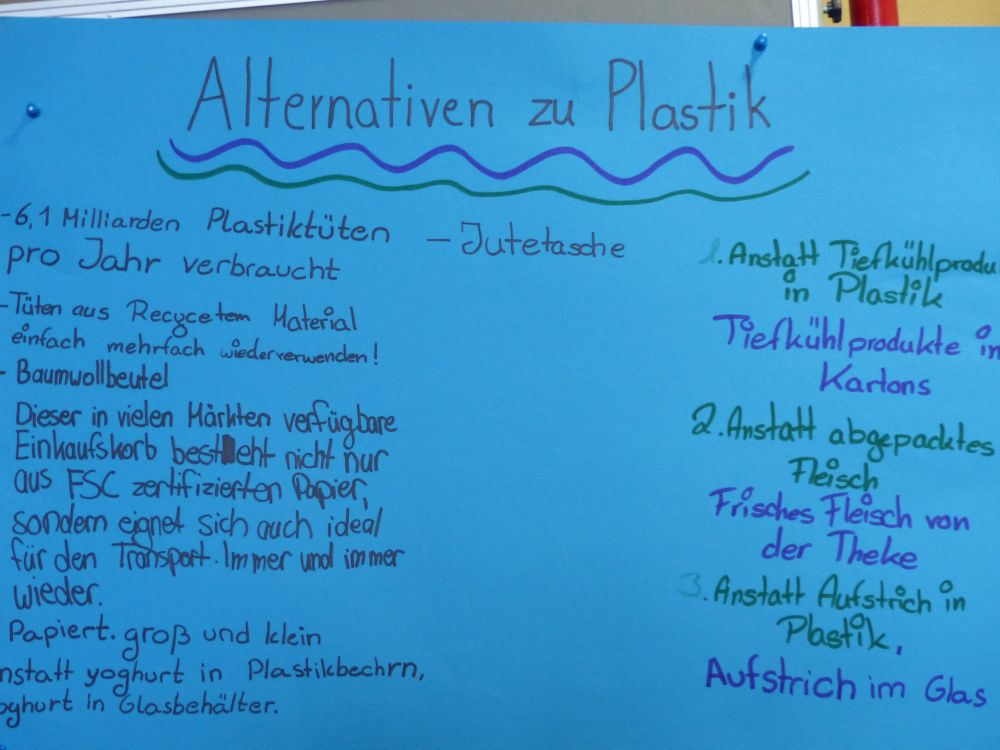 Alternativen zu Plastik
-6,1 Milliarden Plastiktüten
pro Jahr verbraucht
-Tüten aus Recycetem Material
einfach mehrfach wiederverwenden!
- Baumwollbeutel
Dieser in vielen Märkten verfügbare
Einkaufskorb besteht nicht nur
aus FSC zertifizierten Papier,
sondern eignet sich auch ideal
für den Transport. Immer und immer
wieder.
Papiert. groß und klein
nstatt yoghurt in Plastikbechrn,
oghurt in Glasbehälter.
- Jutetasche
1. Anstatt Tiefkühlproduk
in Plastik
Tiefkühlprodukte in
Kartons
2. Anstatt abgepacktes
Fleisch
Frisches Fleisch von
der Theke
3. Anstatt Aufstrich in
Plastik,
Aufstrich im Glas